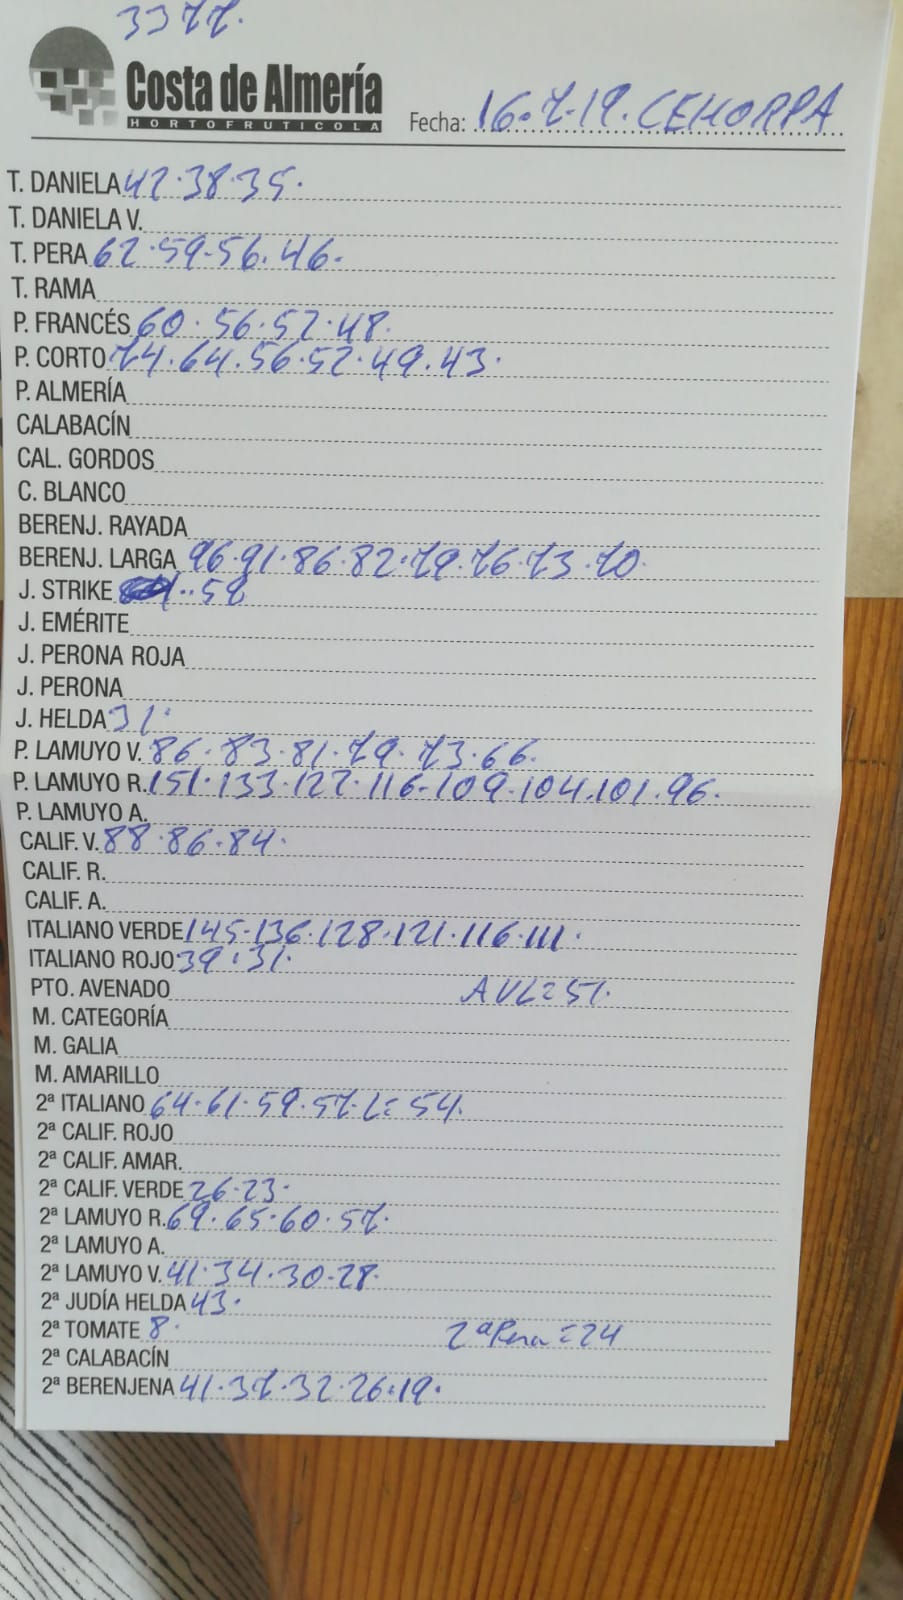 3377.
Costa de Almería
HORTOFRUTICOLA
Fecha: 16.7.19. CEHORPA
T. DANIELA 42.38.35.
T. DANIELA V.
T. PERA 62.59.56.46.
T. RAMA
P. FRANCÉS 60.56.52.48.
P. CORTO 74.64.56.52.49.43.
P. ALMERÍA
CALABACÍN
CAL. GORDOS
C. BLANCO
BERENJ. RAYADA
BERENJ. LARGA 96.91.86.82.79.76.73.70.
J. STRIKE
J. EMÉRITE
J. PERONA ROJA
J. PERONA
J. HELDA 31.
P. LAMUYO V. 86.83.81.79.73.66.
P. LAMUYO R. 151.133.127.116.109.104.101.96.
P. LAMUYO A.
CALIF. V. 88.86.84.
CALIF. R.
CALIF. A.
ITALIANO VERDE 145.136.128.121.116.111.
ITALIANO ROJO 39.31.
PTO. AVENADO AVL=57.
M. CATEGORÍA
M. GALIA
M. AMARILLO
2ª ITALIANO 64.61.59.57.L=54.
2ª CALIF. ROJO
2ª CALIF. AMAR.
2ª CALIF. VERDE 26.23.
2ª LAMUYO R. 69.65.60.57.
2ª LAMUYO A.
2ª LAMUYO V. 41.34.30.28.
2ª JUDÍA HELDA 43.
2ª TOMATE 8. 2ª Pera=24
2ª CALABACÍN
2ª BERENJENA 41.37.32.26.19.